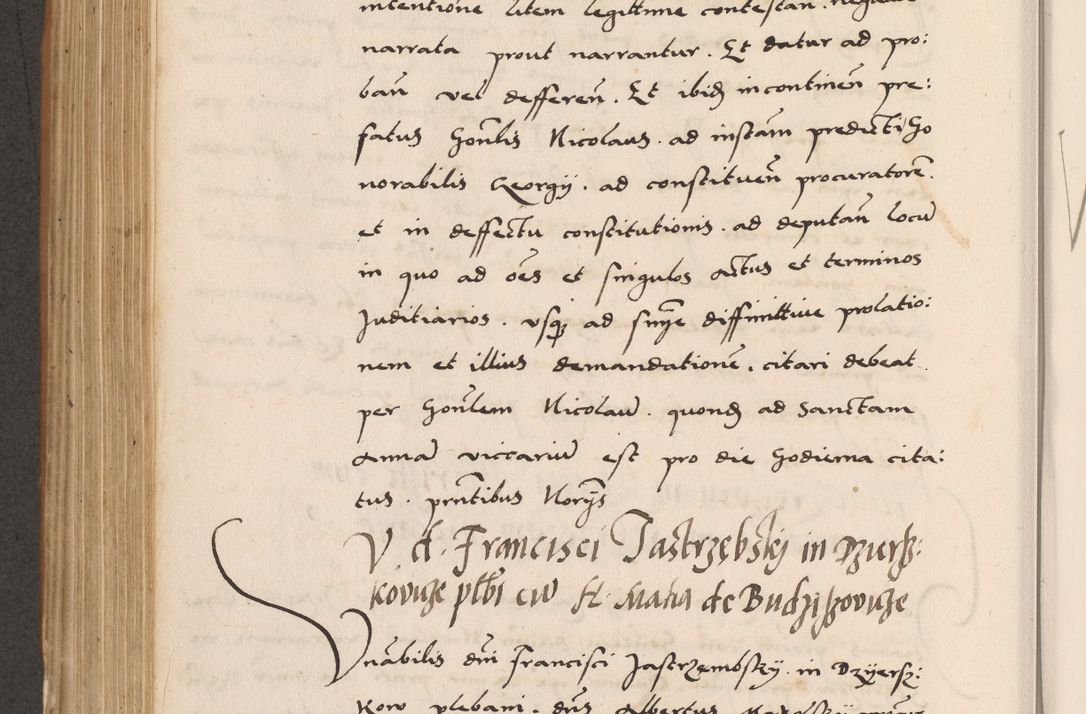 intentione litem legittime contestan. negan
narrata prout narrantur. Et datur ad pro:
ban̄ vel defferen̄. Et ibid̨ incontinen̄ pre:
fatus honlis Nicolaus. ad instam̄ predicti ho
norabilis Georgij. ad constituen̄ procuratorē.
et in deffectu constitutionis. ad deputan̄ locū
in quo ad oēs et singulos actus et terminos
Juditiarios. usq̨ ad smye diffinittive prolatio:
nem et illius demandationē. citari debeat.
per honlem Nicolaū. quond̨ ad Sanctam
Annā viccariū est pro die hodierna cita:
tus. prntibus Norys
V d. Francisci Jastrzębskÿ in Dzierss:
kowicze plbī cū fl. Maria de Budziszowicze
Vnabilis dnī Francisci Jastrzembsky. in Dzyersz:
kow plebani. dns Albertus